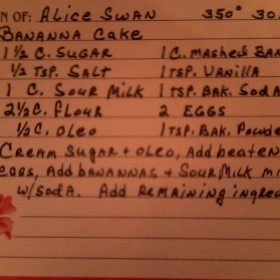 N OF: ALICE SWAN 350° 30
BANANNA CAKE
1 1/2 C. SUGAR 1 C. MASHED BAN
1/2 TSP. SALT 1 TSP. VANILLA
1 C. SOUR MILK 1 TSP. BAK. SODA
2 1/2 C. FLOUR 2 EGGS
1/2 C. OLEO 1 TSP. BAK. POWDE
CREAM SUGAR + OLEO, ADD BEATEN
EGGS, ADD BANANNAS + SOUR MILK MI
W/SODA. ADD REMAINING INGRE